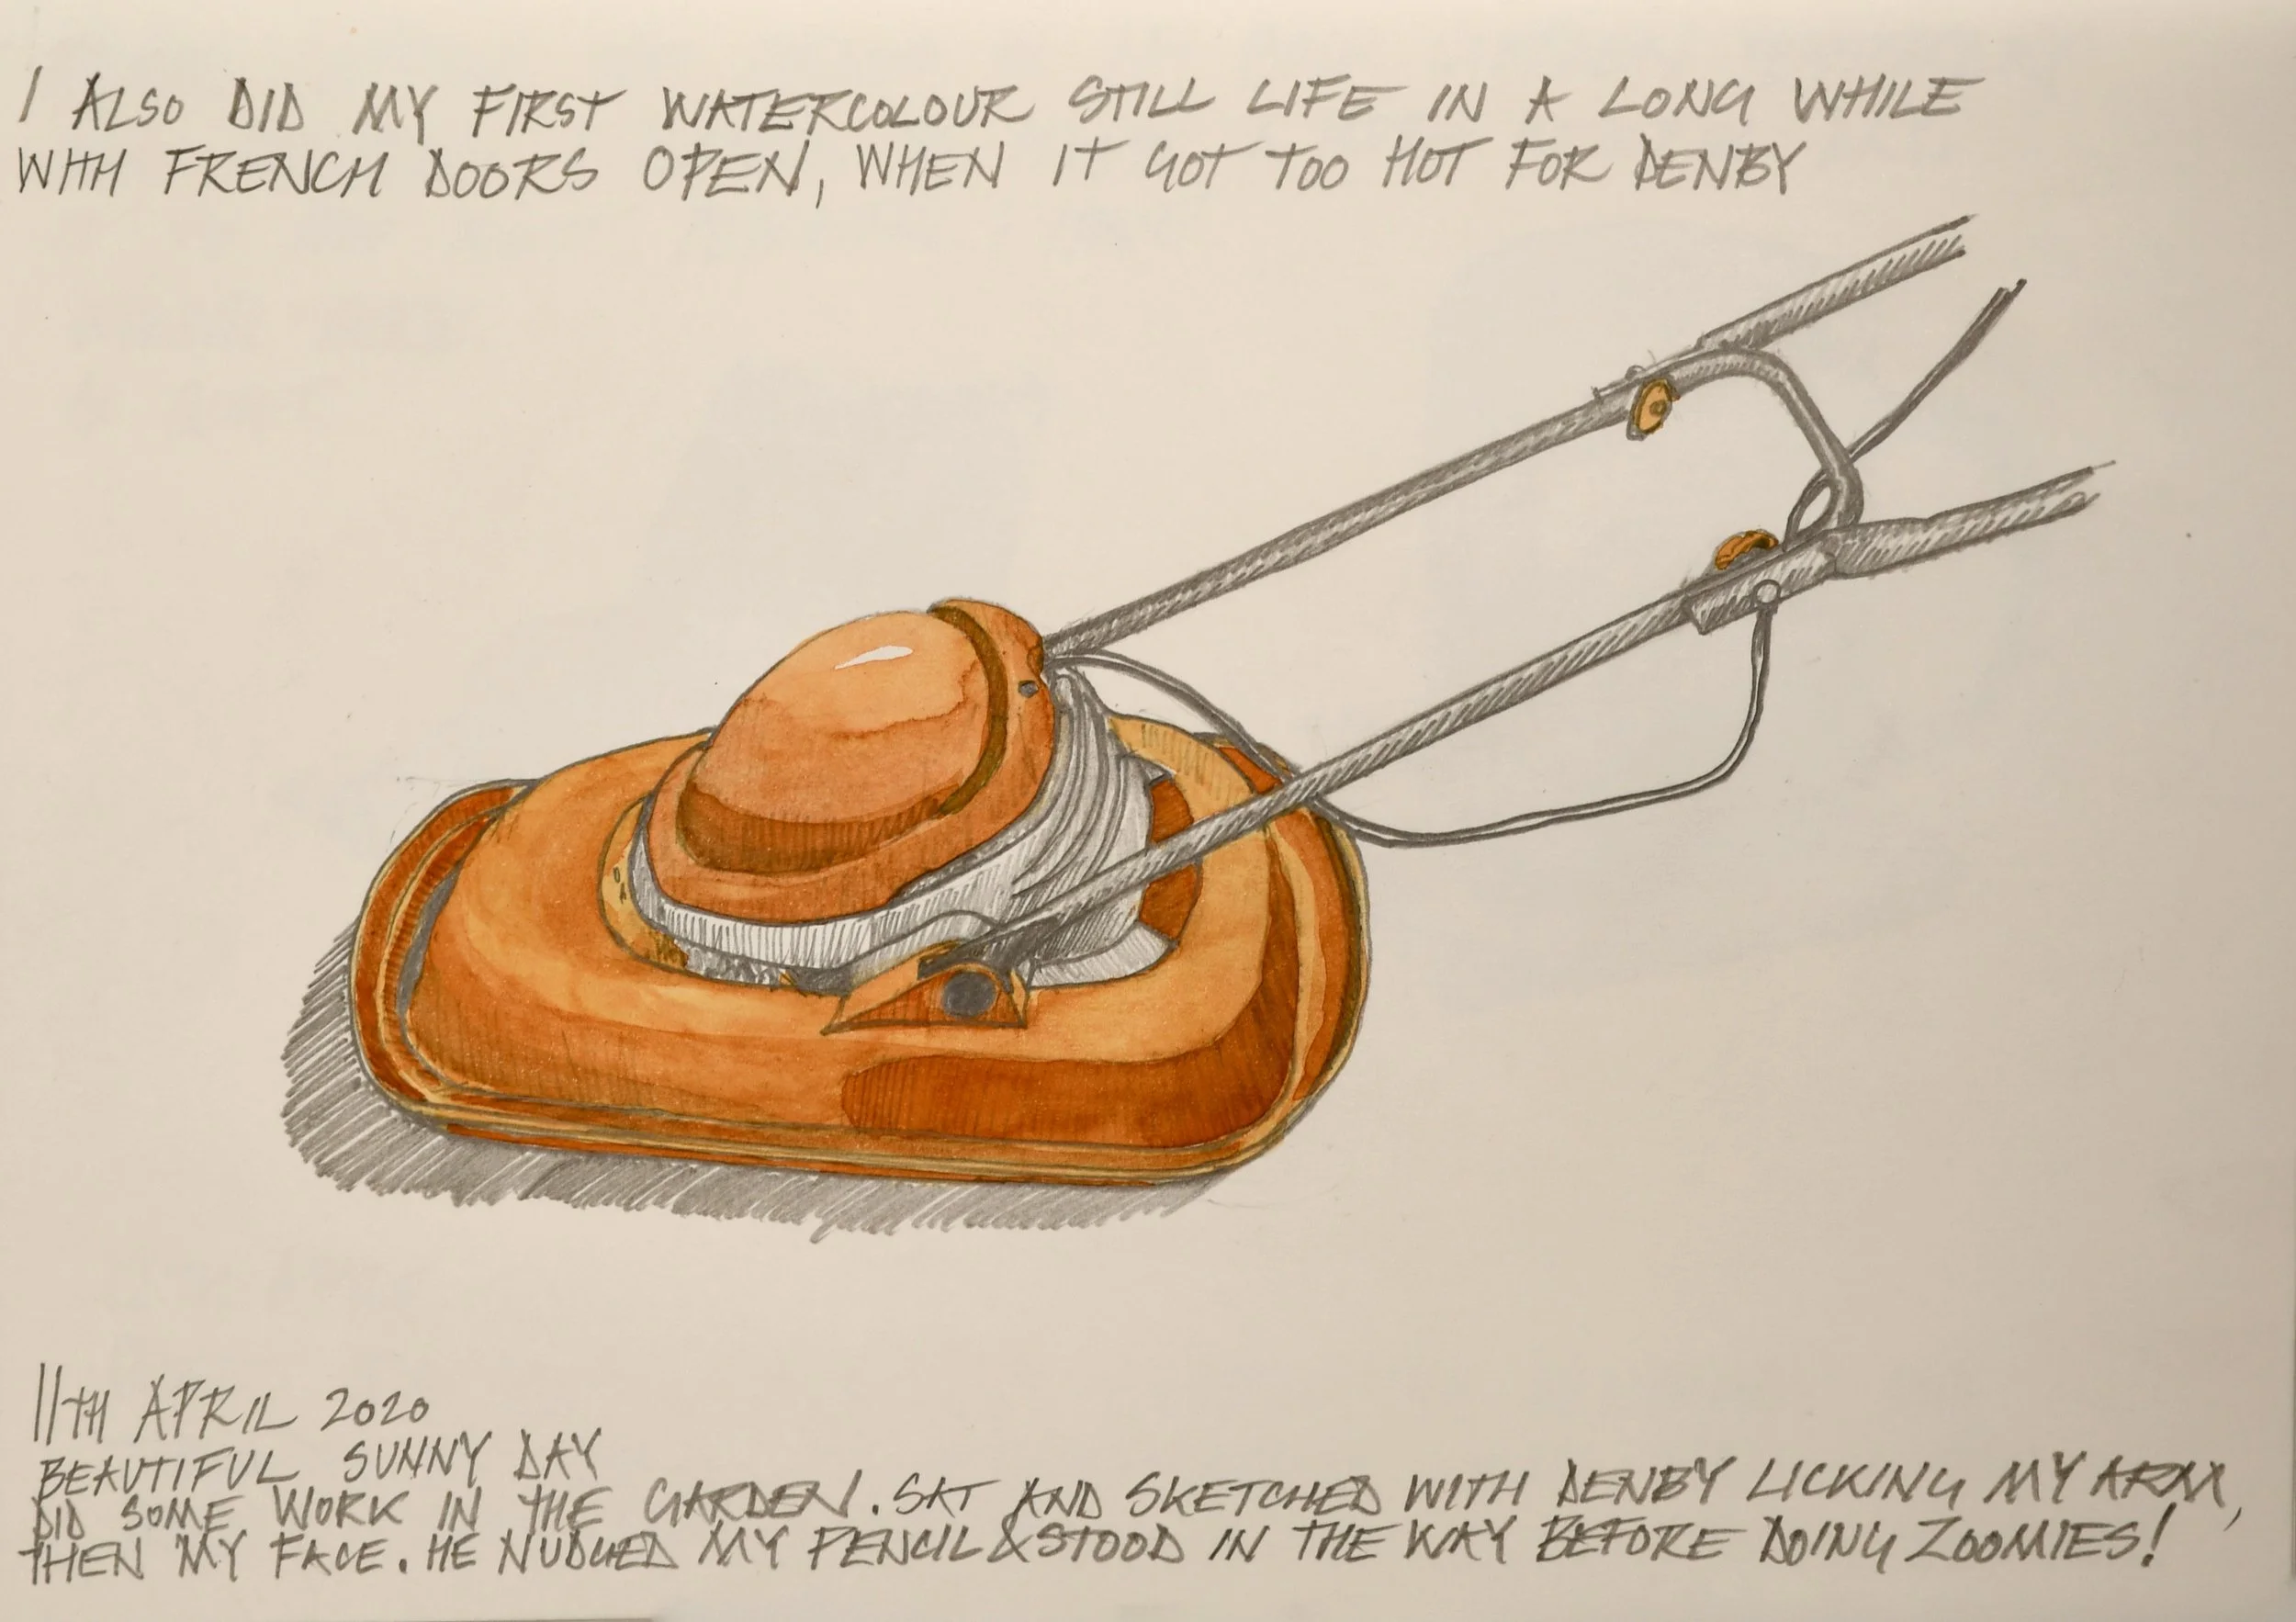 I ALSO DID MY FIRST WATERCOLOUR STILL LIFE IN A LONG WHILE
WITH FRENCH DOORS OPEN, WHEN IT GOT TOO HOT FOR DENBY
11TH APRIL 2020
BEAUTIFUL SUNNY DAY
DID SOME WORK IN THE GARDEN. SAT AND SKETCHED WITH DENBY LICKING MY ARM,
THEN MY FACE. HE NUDGED MY PENCIL & STOOD IN THE WAY BEFORE DOING ZOOMIES!